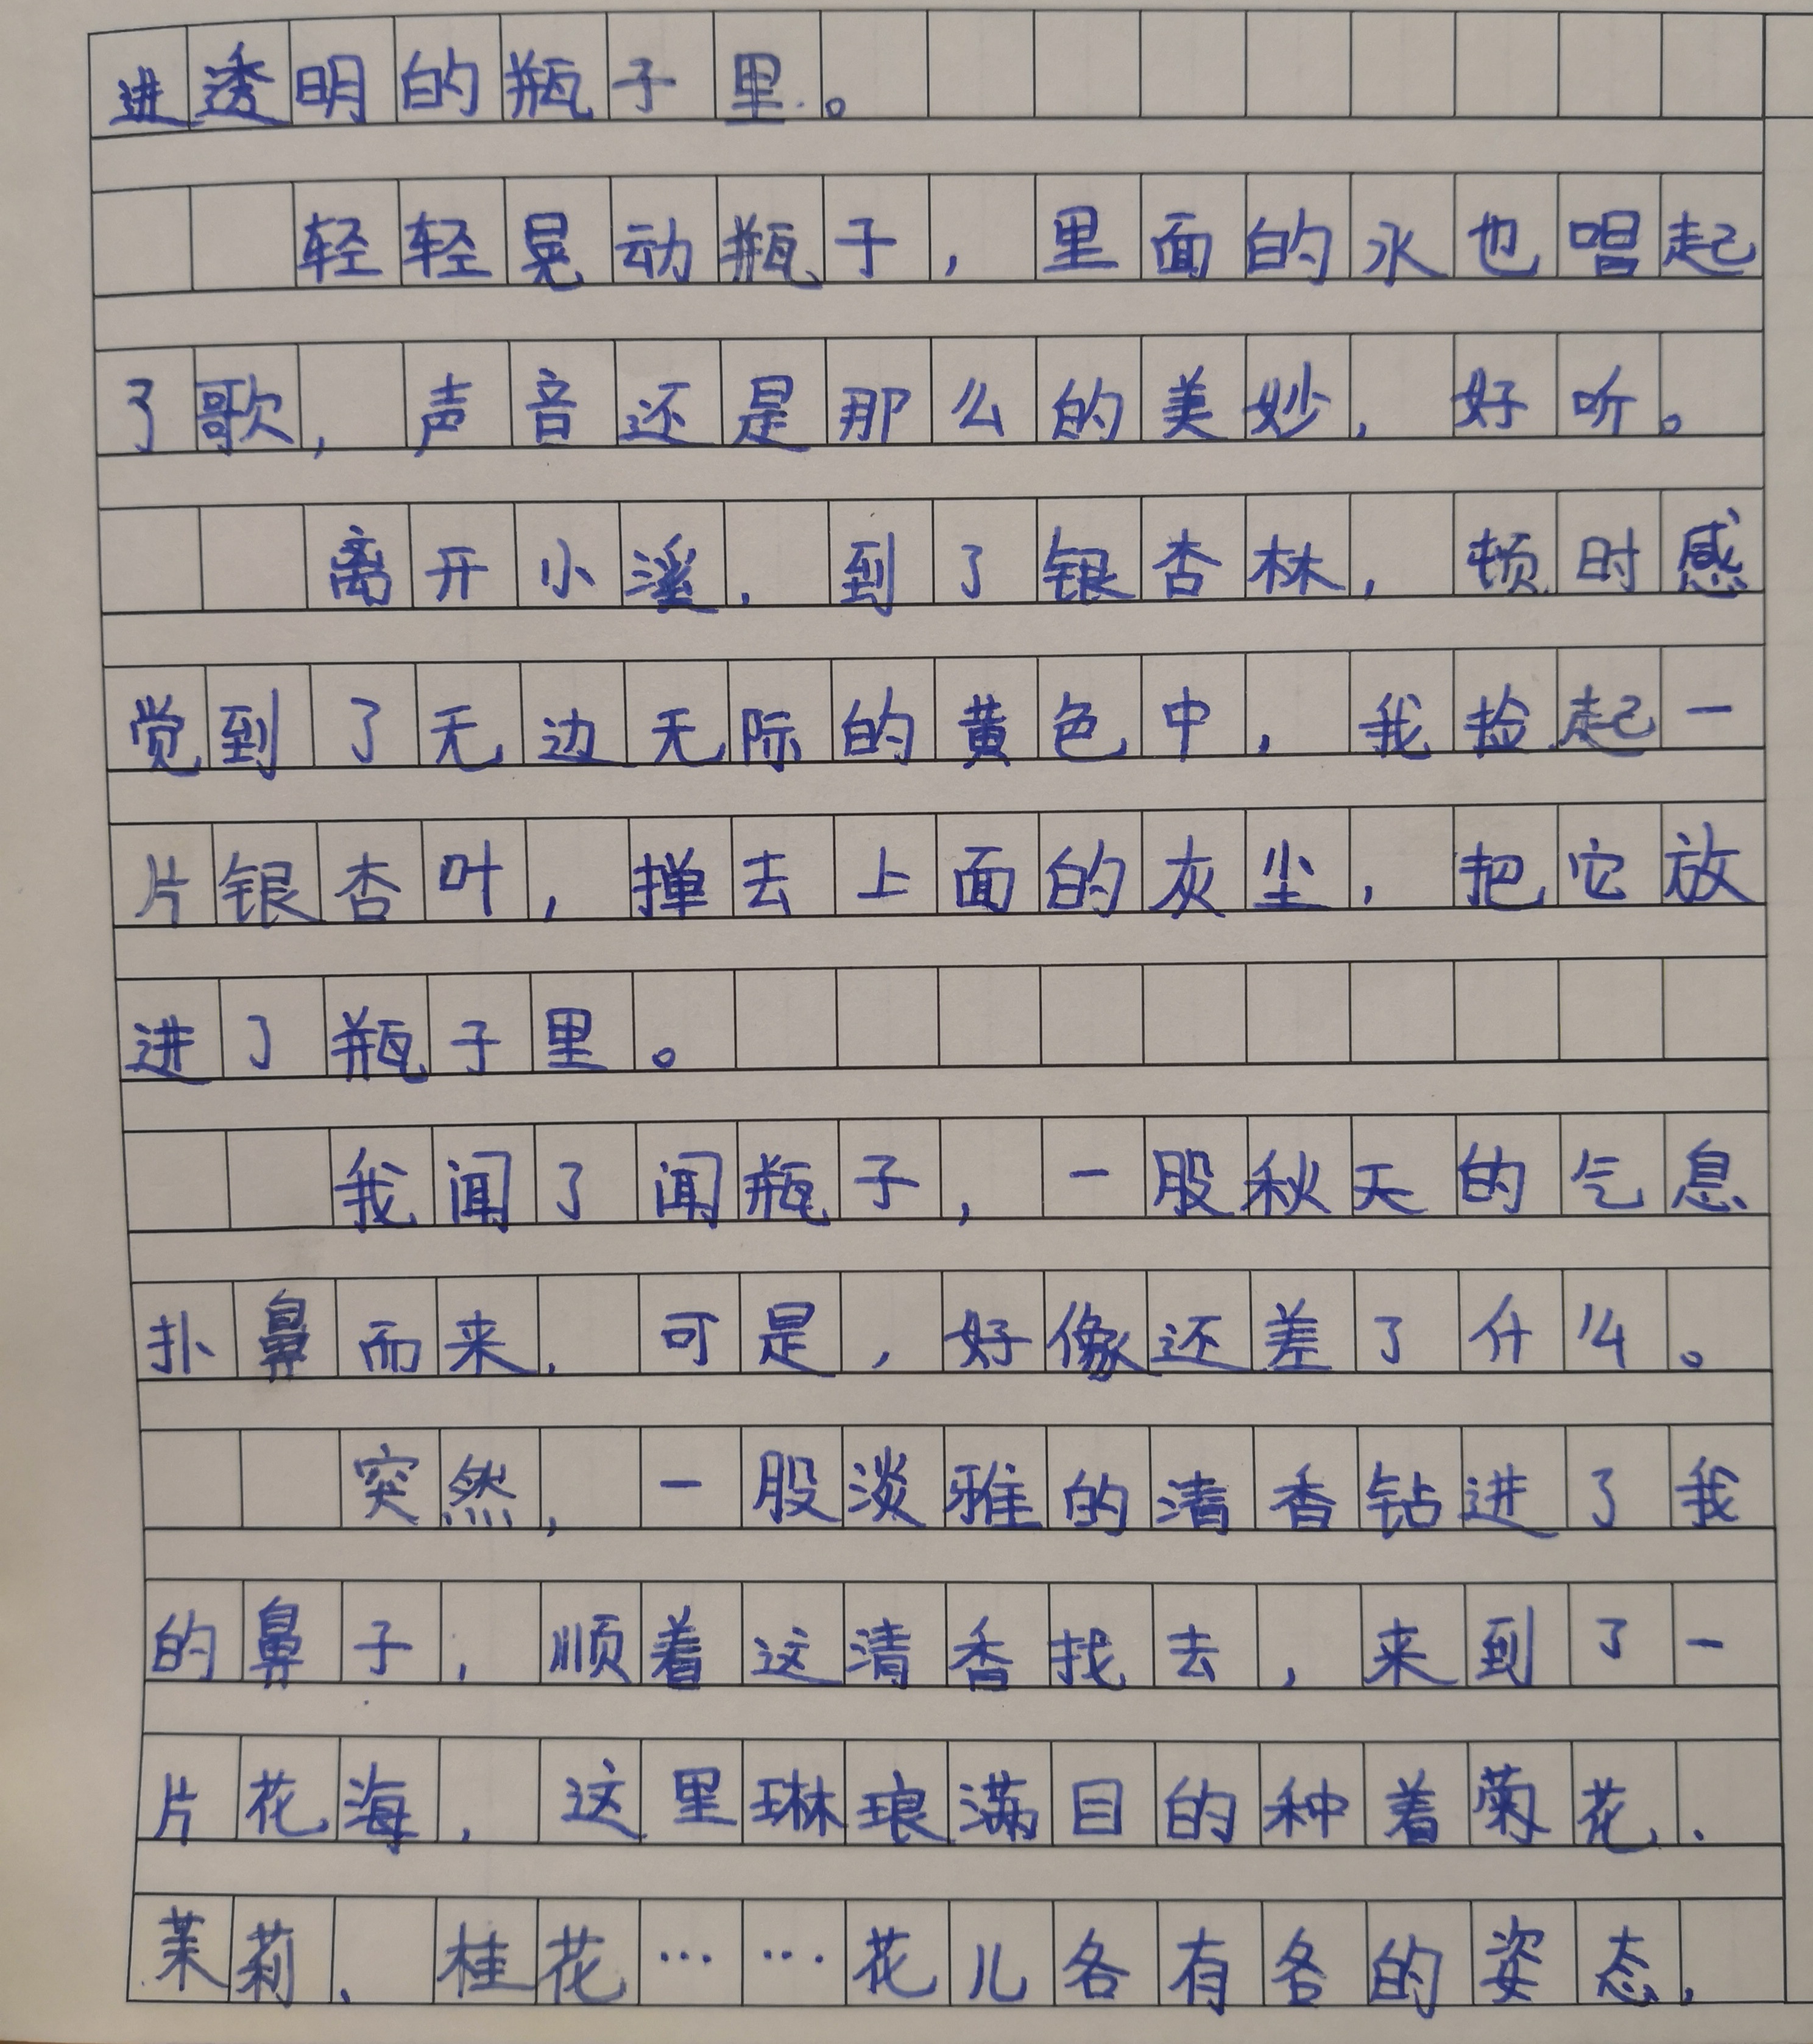 进透明的瓶子里。
轻轻晃动瓶子，里面的水也唱起
了歌，声音还是那么的美妙，好听。
离开小溪，到了银杏林，顿时感
觉到了无边无际的黄色中，我捡起一
片银杏叶，掸去上面的灰尘，把它放
进了瓶子里。
我闻了闻瓶子，一股秋天的气息
扑鼻而来，可是，好像还差了什么。
突然，一股淡雅的清香钻进了我
的鼻子，顺着这清香找去，来到了一
片花海，这里琳琅满目的种着菊花、
茉莉、桂花……花儿各有各的姿态，